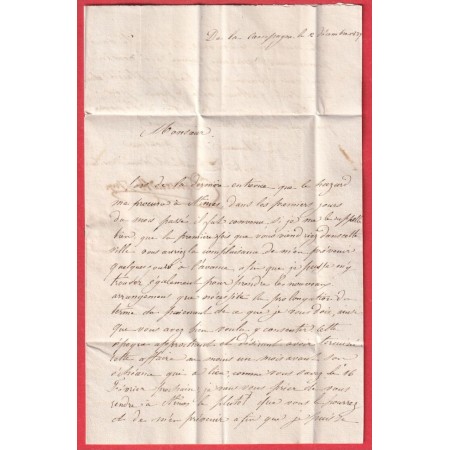 De la campagne le 2 décembre
Monsieur
Lors de la dernière entrevue que le hazard
me procura à Nimes, dans les premiers jours
du mois passé, il fut convenu si je me le rappelle
bien, que la première fois que vous viendriez dans cette
ville vous auriez la complaisance de m'en prévenir
quelques jours à l'avance, afin que je puisse m'y
trouver également pour prendre les nouveaux
arrangement que nécessite la prolongation du
terme du paiement de ce que je vous dois, ainsi
que vous avez bien voulu y consentir cette
époque approchant et désirant avoir terminé
cette affaire au moins un mois avant son
échéance qui a lieu comme vous savez le 16
février prochain, je vous prie de vous
rendre à Nimes le plutôt que vous le pourrez
et de m'en prévenir afin que je puisse